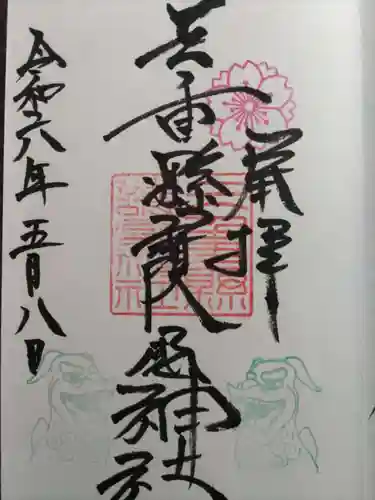 奉拝
三重縣護國神社
令和六年五月八日